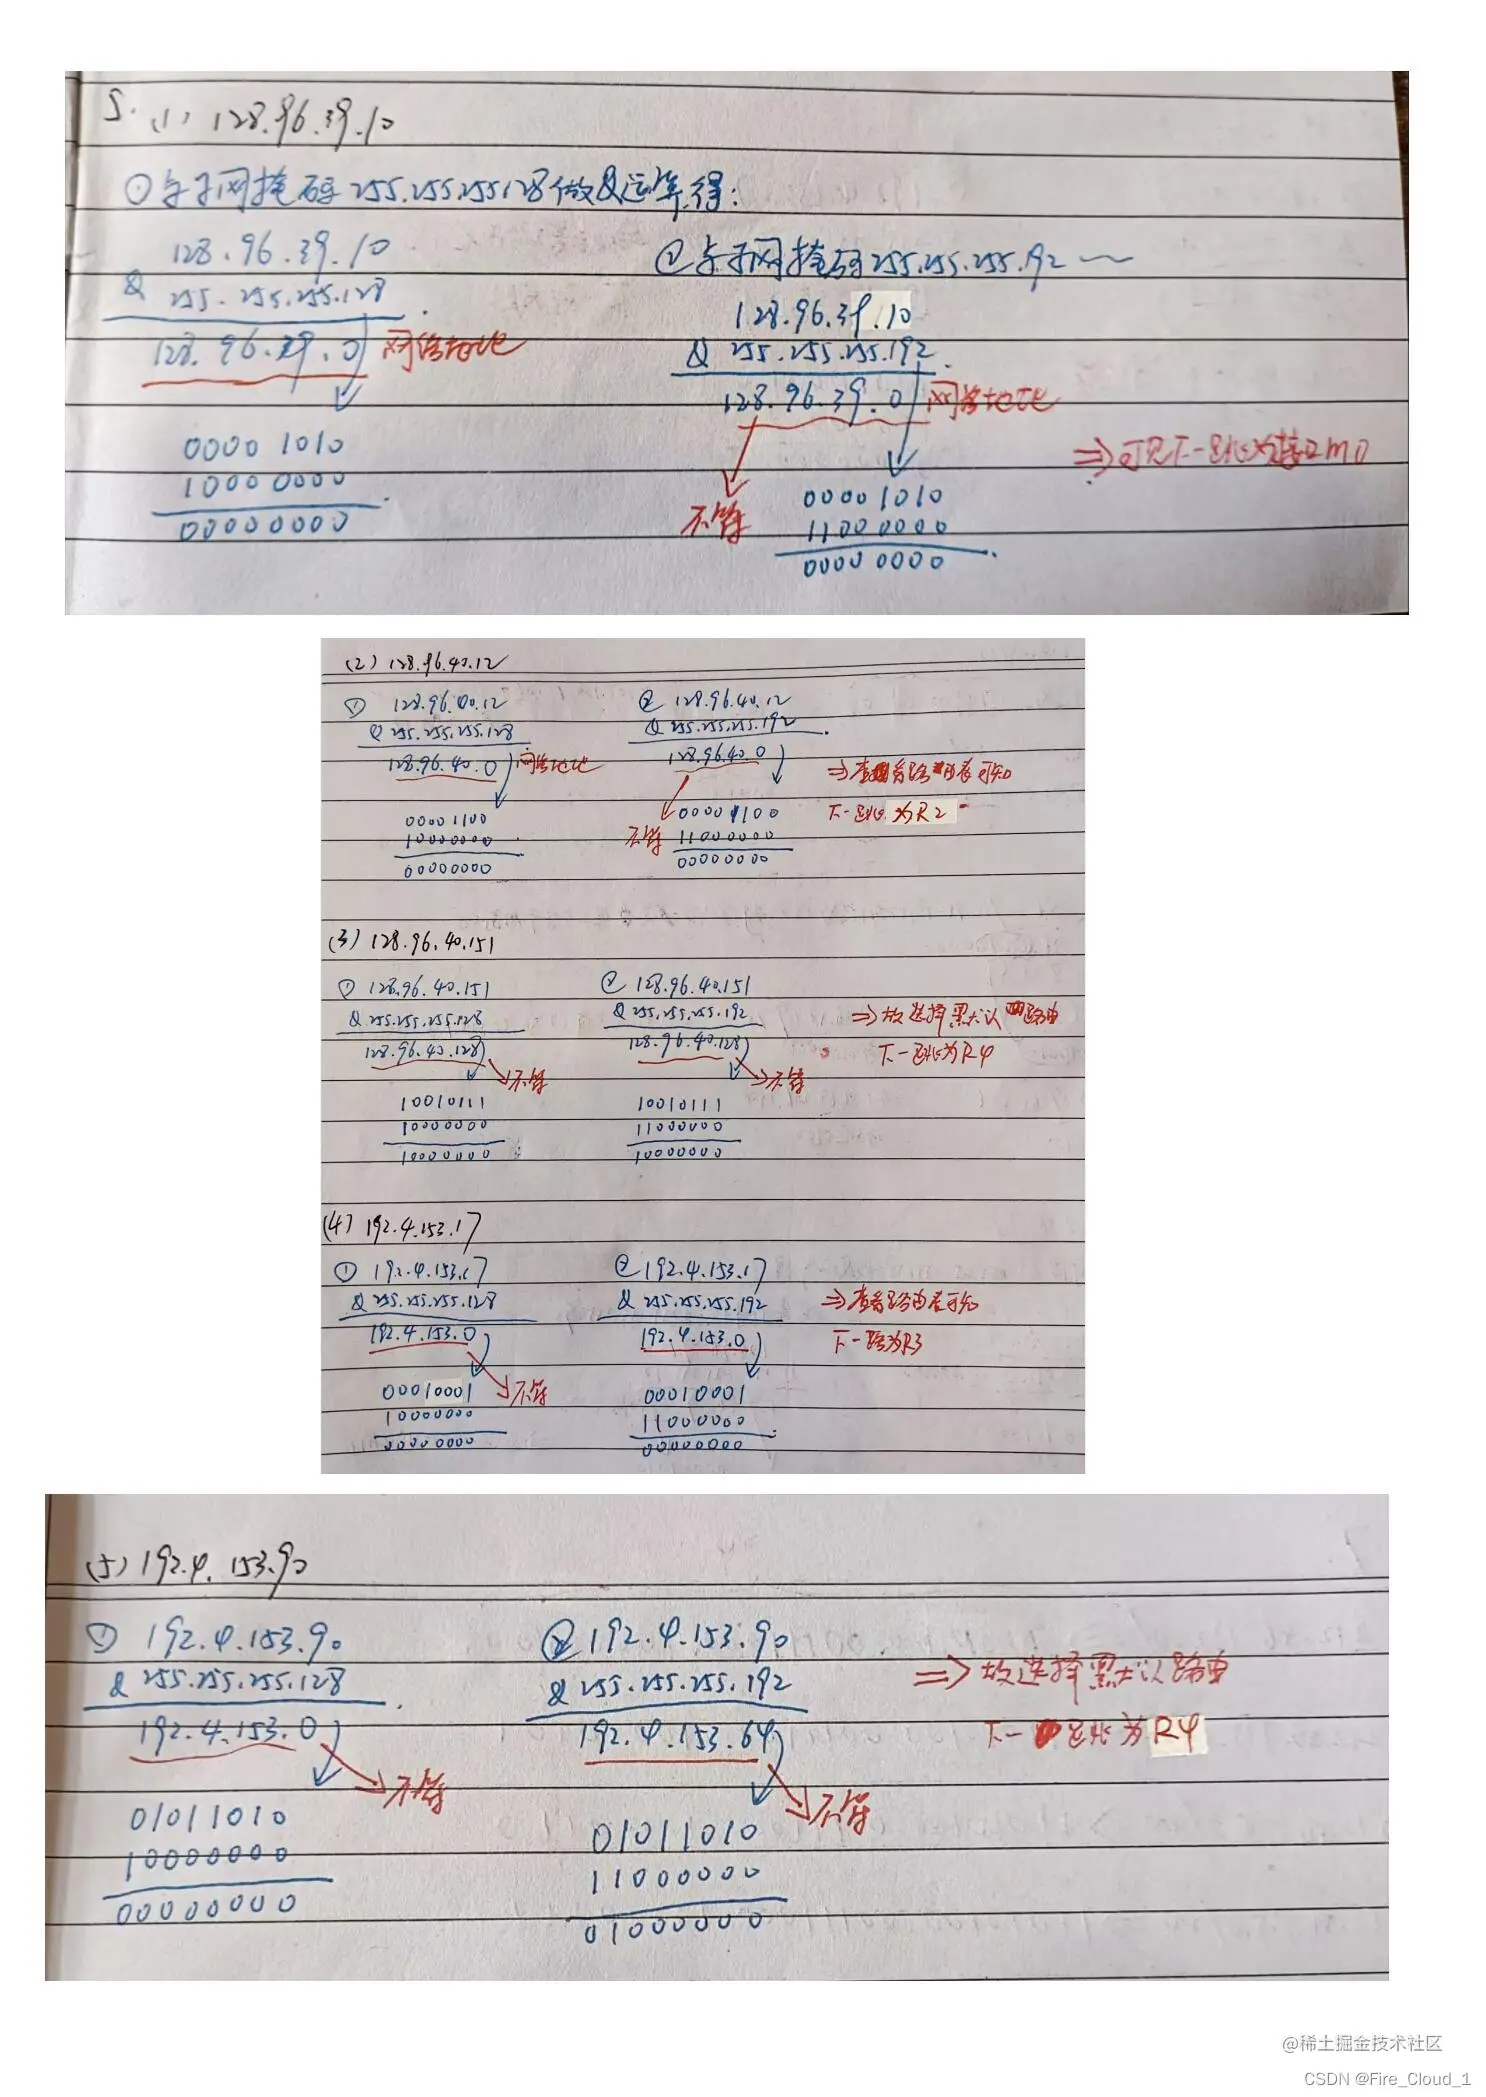 5. (1) 128.96.39.10
① 与子网掩码255.255.255.128做&运算,得:
128.96.39.10
& 255.255.255.128
128.96.39.0 网络地址
0000 1010
1000 0000
00000000
② 与子网掩码255.255.255.192 ~
128.96.39.10
& 255.255.255.192
128.96.39.0 网络地址
不等
0000 1010
1100 0000
0000 0000
⇒可见下一跳为接口m0
(2) 128.96.40.12
① 128.96.40.12
& 255.255.255.128
128.96.40.0 网络地址
00001100
10000000
00000000
② 128.96.40.12
& 255.255.255.192
128.96.40.0
不等
00001100
11000000
00000000
⇒查看路由表可知
下一跳为R2
(3) 128.96.40.151
① 128.96.40.151
& 255.255.255.128
128.96.40.128
不等
10010111
10000000
10000000
② 128.96.40.151
& 255.255.255.192
128.96.40.128
不等
10010111
11000000
10000000
⇒故选择默认路由
下一跳为R4
(4) 192.4.153.17
① 192.4.153.17
& 255.255.255.128
192.4.153.0
不等
00010001
10000000
00000000
② 192.4.153.17
& 255.255.255.192
192.4.153.0
00010001
11000000
00000000
⇒查看路由表可知
下一跳为R3
(5) 192.4.153.90
① 192.4.153.90
& 255.255.255.128
192.4.153.0
不等
01011010
10000000
00000000
② 192.4.153.90
& 255.255.255.192
192.4.153.64
不等
01011010
11000000
01000000
⇒故选择默认路由
下一跳为R4
@稀土掘金技术社区
CSDN @Fire_Cloud_1